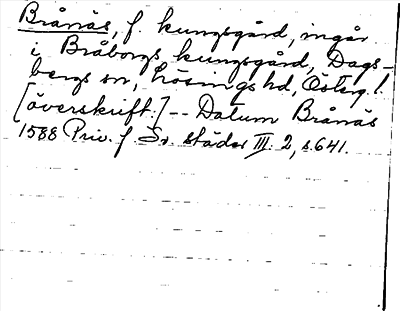 Brånäs, f. kungsgård, ingår
i Bråborgs kungsgård, Dags-
bergs sn, Lösings hd, Österg. l.
[överskrift:] -- Datum Brånäs
1588 Priv. f. Sv. städer III: 2, s. 641.